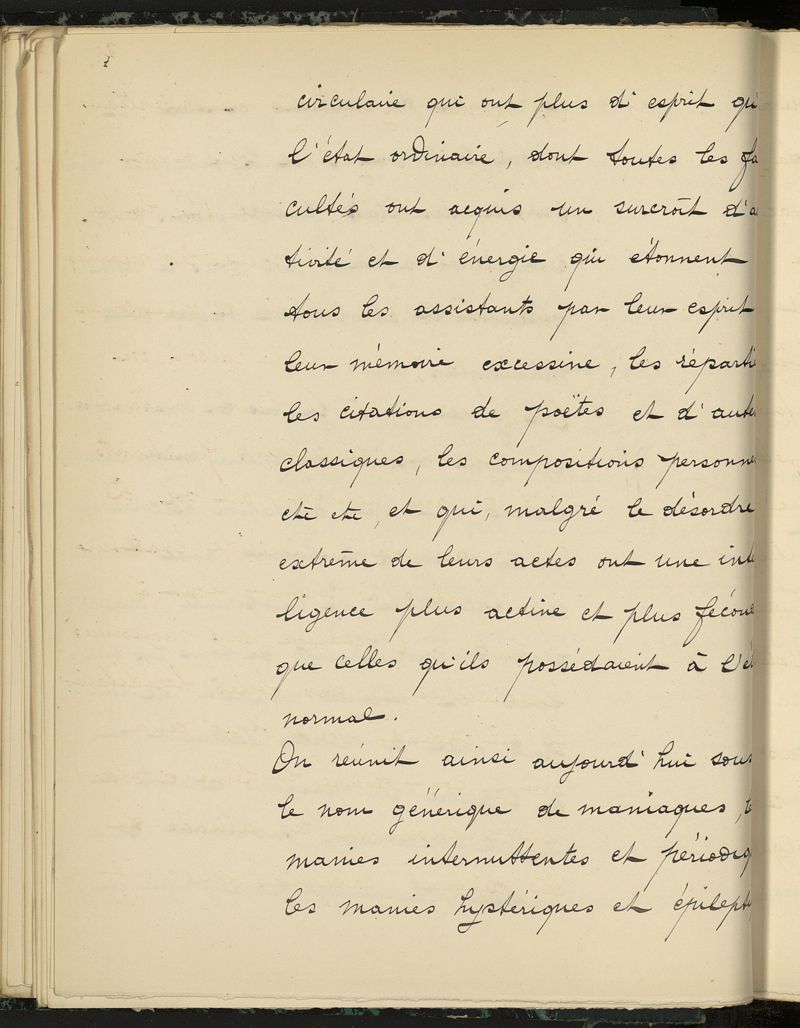 circulaire qui ont plus d'esprit qu
l'état ordinaire, dont toutes les fa
cultés ont acquis un surcroît d'a
tivité et d'énergie qui étonnent
tous les assistants par leur esprit
leur mémoire excessive, les réparti
les citations de poëtes et d'aute
classiques, les compositions personne
etc etc, et qui, malgré le désordre
extrême de leurs actes ont une int
ligence plus active et plus fécon
que celles qu'ils possédaient à l'é
normal.
On réunit ainsi aujourd'hui sous
le nom générique de maniaques, l
manies intermittentes et périodiq
les manies hystériques et épilept